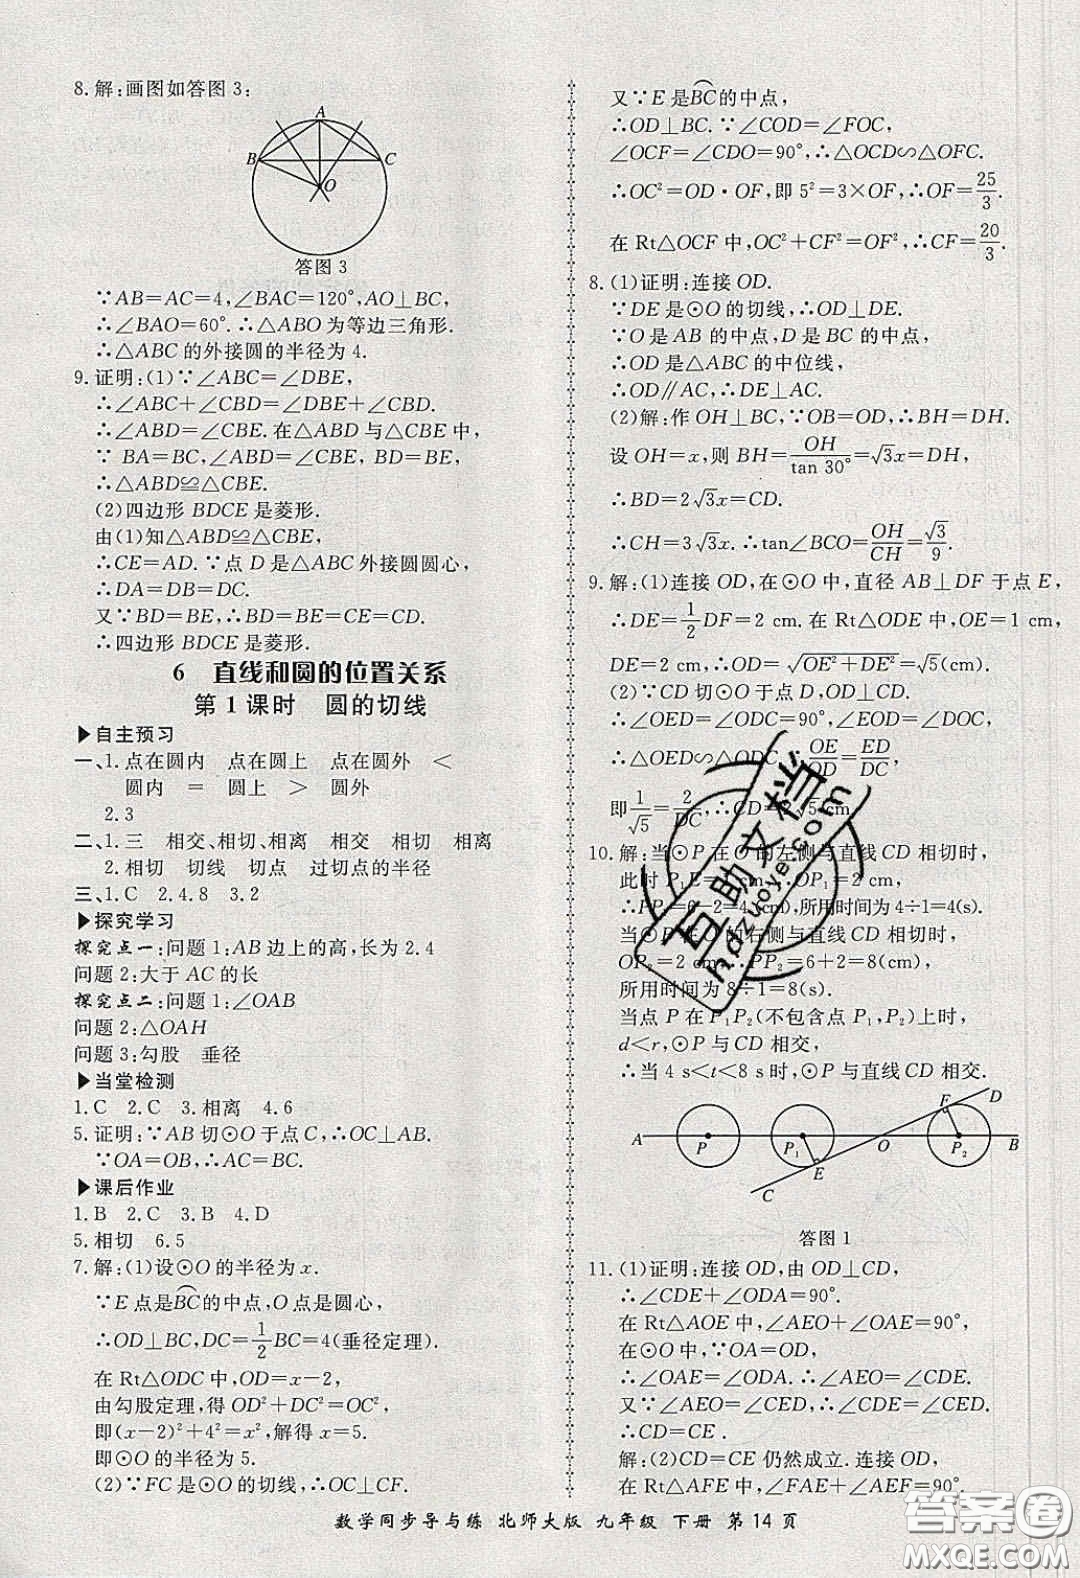 8.解:画图如答图3:
A
B
C
O
答图3
∵AB=AC=4,∠BAC=120°,AO⊥BC,
∴∠BAO=60°.∴△ABO为等边三角形.
∴△ABC的外接圆的半径为4.
9.证明:(1)∵∠ABC=∠DBE,
∴∠ABC+∠CBD=∠DBE+∠CBD.
∴∠ABD=∠CBE.在△ABD与△CBE中,
∵ BA=BC,∠ABD=∠CBE,BD=BE,
∴△ABD≌△CBE.
(2)四边形BDCE是菱形.
由(1)知△ABD≌△CBE,
∴CE=AD.∵点D是△ABC外接圆圆心,
∴DA=DB=DC.
又∵BD=BE,∴BD=BE=CE=CD.
∴四边形BDCE是菱形.
6 直线和圆的位置关系
第1课时 圆的切线
▶自主预习
一、1.点在圆内 点在圆上 点在圆外 <
圆内 = 圆上 > 圆外
2.3
二、1.三 相交、相切、相离 相交 相切 相离
2.相切 切线 切点 过切点的半径
三、1.C 2.4.8 3.2
▶探究学习
探究点一:问题1:AB边上的高,长为2.4
问题2:大于AC的长
探究点二:问题1:∠OAB
问题2:△OAH
问题3:勾股 垂径
▶当堂检测
1.C 2.C 3.相离 4.6
5.证明:∵AB切⊙O于点C,∴OC⊥AB.
∵OA=OB,∴AC=BC.
▶课后作业
1.B 2.C 3.B 4.D
5.相切 6.5
7.解:(1)设⊙O的半径为x.
∵E点是BC⌒的中点,O点是圆心,
∴OD⊥BC,DC=1/2BC=4(垂径定理).
在Rt△ODC中,OD=x-2,
由勾股定理,得OD²+DC²=OC²,
即(x-2)²+4²=x²,解得x=5.
即⊙O的半径为5.
(2)∵FC是⊙O的切线,∴OC⊥CF.
又∵E是BC⌒的中点,
∴OD⊥BC.∵∠COD=∠FOC,
∠OCF=∠CDO=90°,∴△OCD∽△OFC.
∴OC²=OD·OF,即5²=3×OF,∴OF=25/3.
在Rt△OCF中,OC²+CF²=OF²,∴CF=20/3.
8.(1)证明:连接OD.
∵DE是⊙O的切线,∴OD⊥DE.
∵O是AB的中点,D是BC的中点,
∴OD是△ABC的中位线,
∴OD∥AC,∴DE⊥AC.
(2)解:作OH⊥BC,∵OB=OD,∴BH=DH.
设OH=x,则BH=OH/tan 30°=√3x=DH,
∴BD=2√3x=CD.
∴CH=3√3x.∴tan∠BCO=OH/CH=√3/9.
9.解:(1)连接OD,在⊙O中,直径AB⊥DF于点E,
∴DE=1/2DF=2 cm.在Rt△ODE中,OE=1 cm,
DE=2 cm,∴OD=√(OE²+DE²)=√5(cm).
(2)∵CD切⊙O于点D,∴OD⊥CD.
∴∠OED=∠ODC=90°,∠EOD=∠DOC,
∴△OED∽△ODC,∴OE/OD=ED/DC,
即1/√5=2/DC,∴CD=2√5 cm
10.解:当⊙P在O的左侧与直线CD相切时,
此时P₁E=2 cm,∴OP₁=2 cm,
∴PP₁=6-2=4(cm),所用时间为4÷1=4(s).
当⊙P在O的右侧与直线CD相切时,
OP₂=2 cm,∴PP₂=6+2=8(cm),
所用时间为8÷1=8(s).
当点P在P₁P₂(不包含点P₁,P₂)上时,
d<r,⊙P与CD相交,
∴当4 s<t<8 s时,⊙P与直线CD相交.
F
D
A
P
P₁
O
P₂
B
E
C
答图1
11.(1)证明:连接OD,由OD⊥CD,
∴∠CDE+∠ODA=90°.
在Rt△AOE中,∠AEO+∠OAE=90°,
在⊙O中,∵OA=OD,
∴∠OAE=∠ODA.∴∠AEO=∠CDE.
又∵∠AEO=∠CED.∴∠CDE=∠CED.
∴CD=CE.
解:(2)CD=CE仍然成立.连接OD,
在Rt△AFE中,∠FAE+∠AEF=90°.
数学同步导与练 北师大版 九年级 下册 第14页
互助文档
hdzuoye.com
答案圈
MXQE.COM